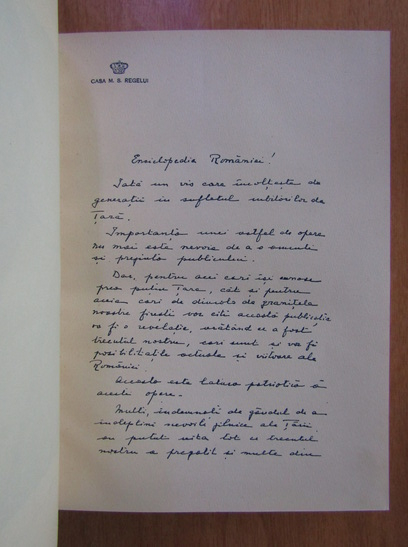 CASA M. S. REGELUI
Enciclopedia României!
Iată un vis care încolțește de
generații în sufletul iubitorilor de
Țară.
Importanța unei astfel de opere
nu mai este nevoie de a o aminti
și prezinta publicului.
Dar, pentru acei cari își cunosc
prea puțin Țara, cât și pentru
aceia cari de dincolo de granițele
noastre firești vor citi această publicație
va fi o revelație, arătând ce a fost
trecutul nostru, cari sunt și va fi
posibilitățile actuale și viitoare ale
României.
Aceasta este latura patriotică a
acestei opere.
Mulți, îndemnați de gândul de a
îndeplini nevoile zilnice ale Țării,
au putut uita tot ce trecutul
nostru a pregătit și multe din